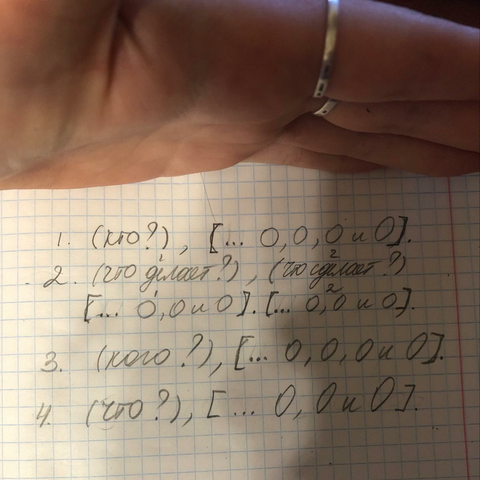 1. (кто?), [... О, О, О и О].
2. (что делает?)¹, (что сделает?)²
[... О, О и О]¹. [... О, О и О]².
3. (кого?), [... О, О, О и О].
4. (что?), [... О, О и О].